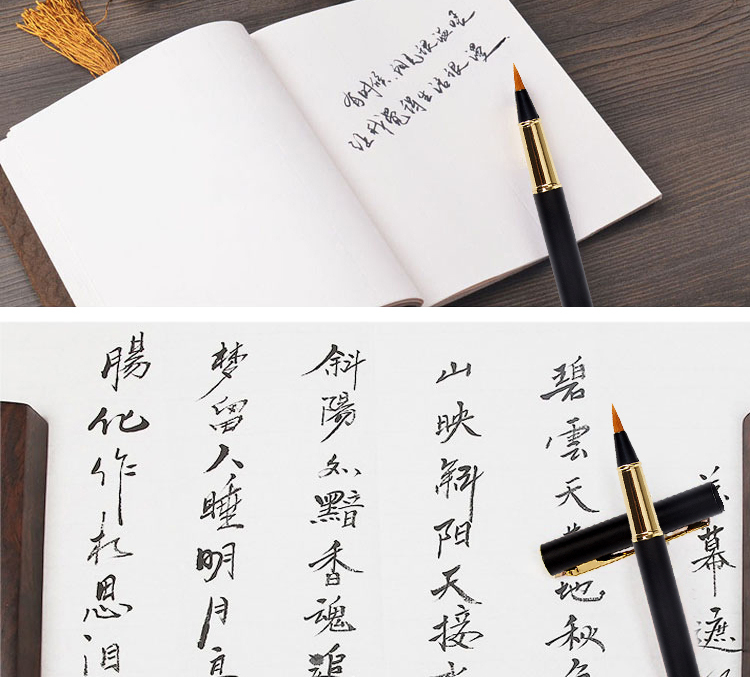 有时候,阳光很温暖
我觉得生活很漫
幕遮
碧雲天地秋色
山映斜阳天接水
斜陽外黯香魂追
梦留人睡明月高
腸化作相思泪